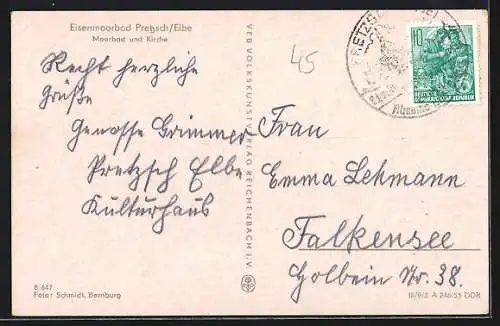 Eisenmoorbad Pretzsch/Elbe
Moorbad und Kirche
Recht herzliche
Grüße
Genosse Grimmer
Pretzsch Elbe
Kulturhaus
B 647
Foto: Schmidt, Bernburg
VEB VOLKSKUNSTVERLAG REICHENBACH I. V.
45
10
DEUTSCHE
DEMOKRATISCHE REPUBLIK
Frau
Emma Lehmann
Falkensee
Holbein Nr. 38.
III/9/3 A 246/55 DDR